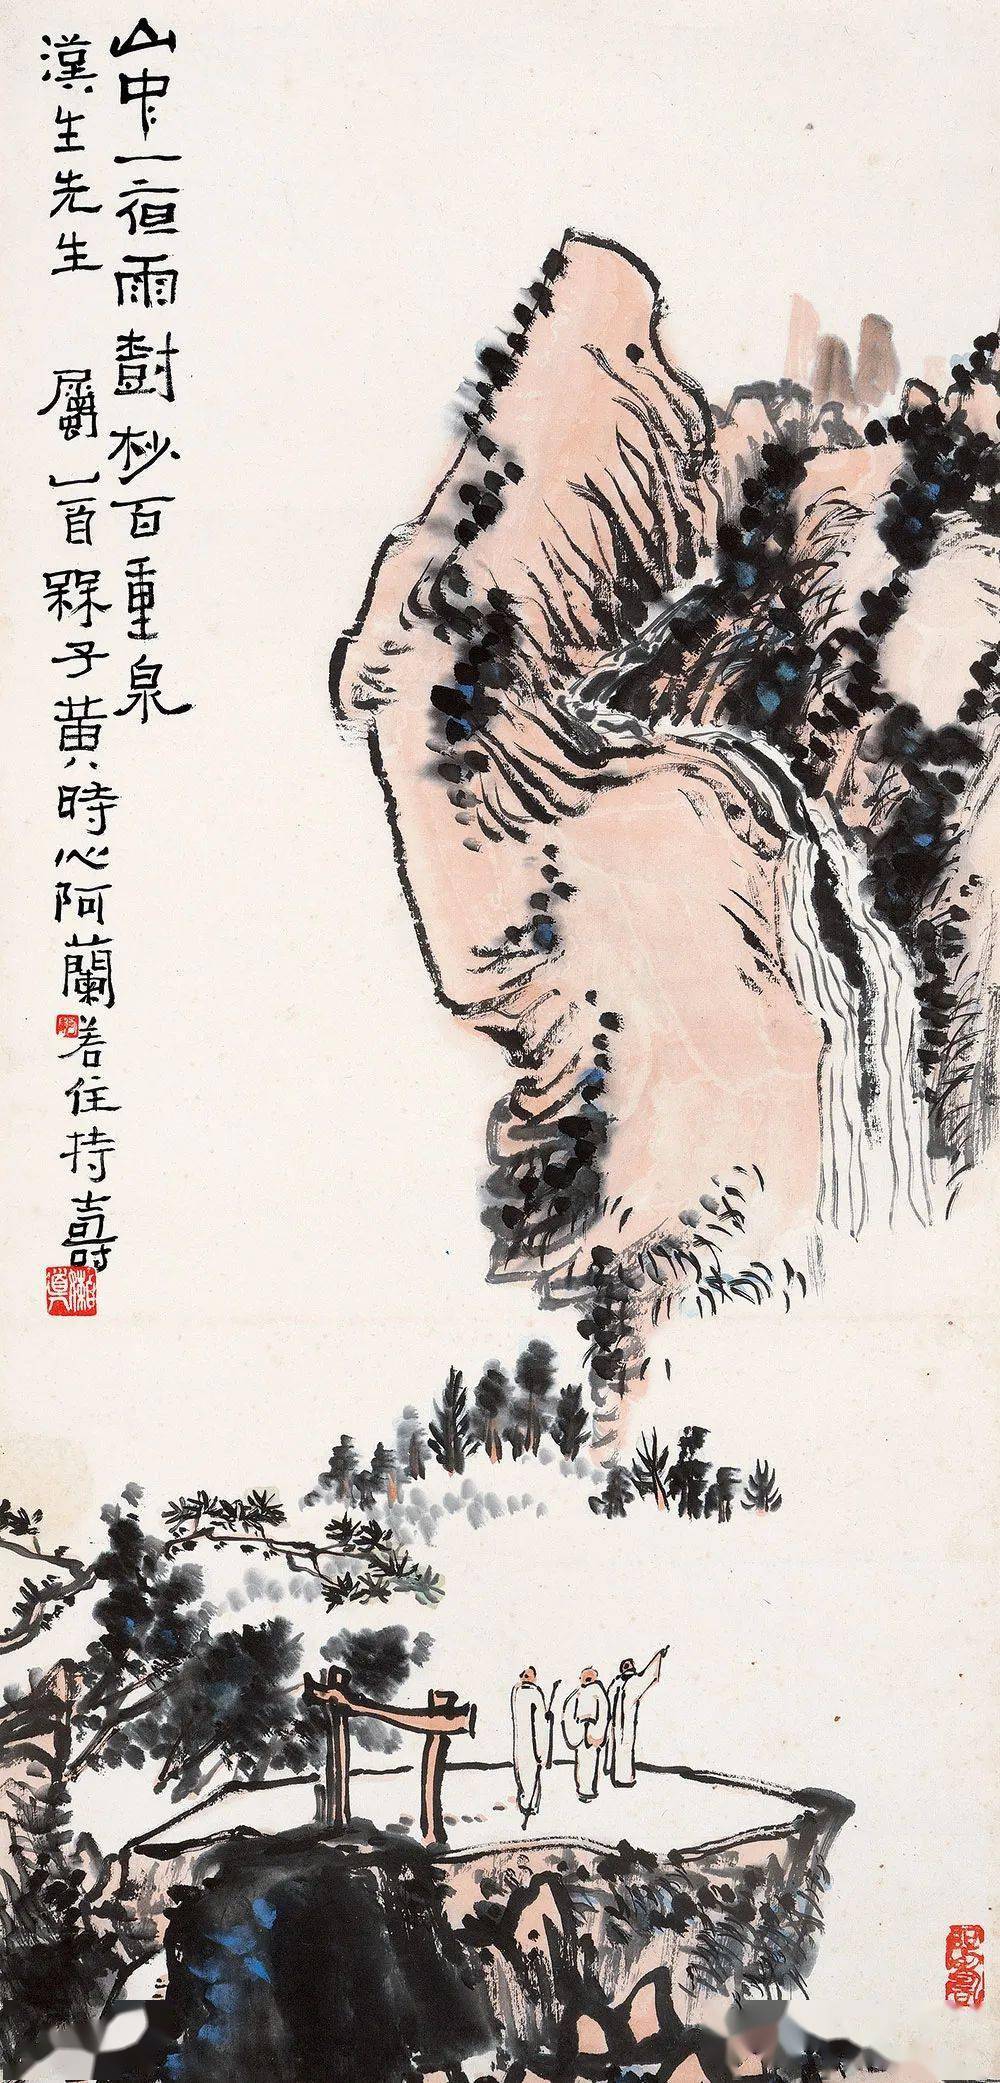 山中一亱雨樹杪百重泉
漢生先生 屬 乙酉槑子黄時心阿蘭若住持壽